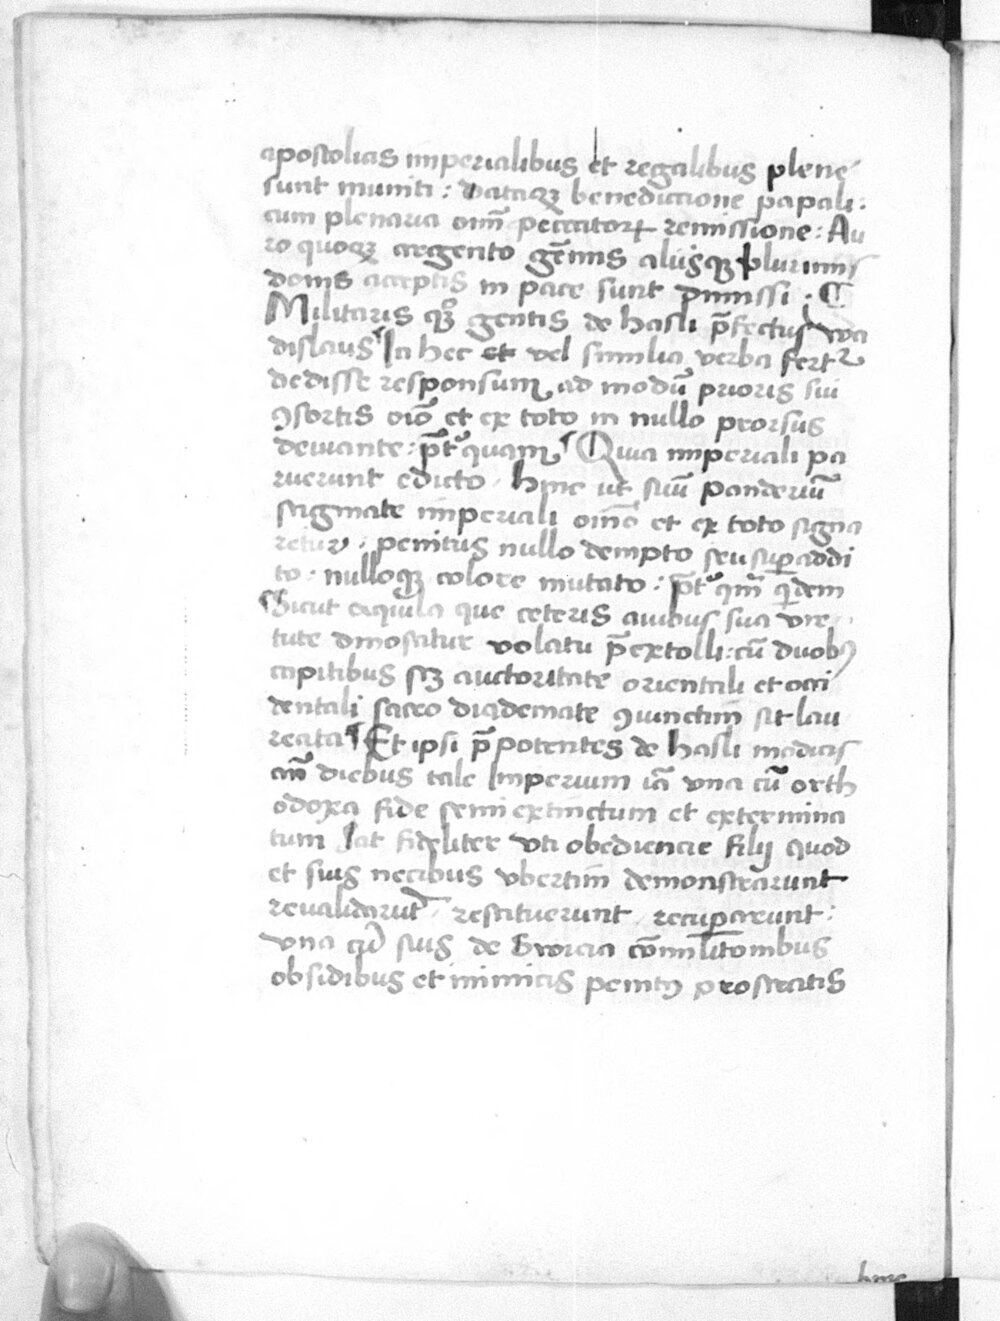 apostolicis imperialibus et regalibus plene
sunt muniti : dataqꝫ benedictione papali :
cum plenaria oim̄ peccatorꝝ remissione : Au
ro quoqꝫ argento gem̄is alijsqꝫ plurimis
donis acceptis in pace sunt dimissi : ¶
Militaris qꝫ gentis de hasli p̄fectus wla
dislaus ¶ Ia hec et vel similia verba fertᷣ
dedisse responsum ad modū prioris sui
ꝯsortis oīo et ex toto in nullo prorsus
deuiante : p̄tqͣuam ¶ Quia imperiali pa
ruerunt edicto . hinc ut suū panderiū
stigmate imperiali oīno et ex toto signa
retur . penitus nullo dempto seu suꝑaddi
to : nulloqꝫ colore mutato : p̄t qm̄ qͥdem
¶ Sicut aquila que ceteris auibus sua vir
tute dinoscitur volatu p̄extolli : cū duobꝰ
capitibus sꝫ auctoritate orientali et occi
dentali sacro diademate ꝯiunctim sit lau
reata ¶ Et ipsi p̄potentes de hasli modicis
cm̄ diebus tale Imperium iā vna cū orth
odoxa fide semi extinctum et extermina
tum Iat fideliter vti obediencie filij quod
et suis necibus vbertim demonstrarunt
reualidarūt . restituerunt . recuꝑarunt :
vna cū suis de Swicia cōmilitonibus
obsidibus et inimicis penitꝰ prostratis
hinc